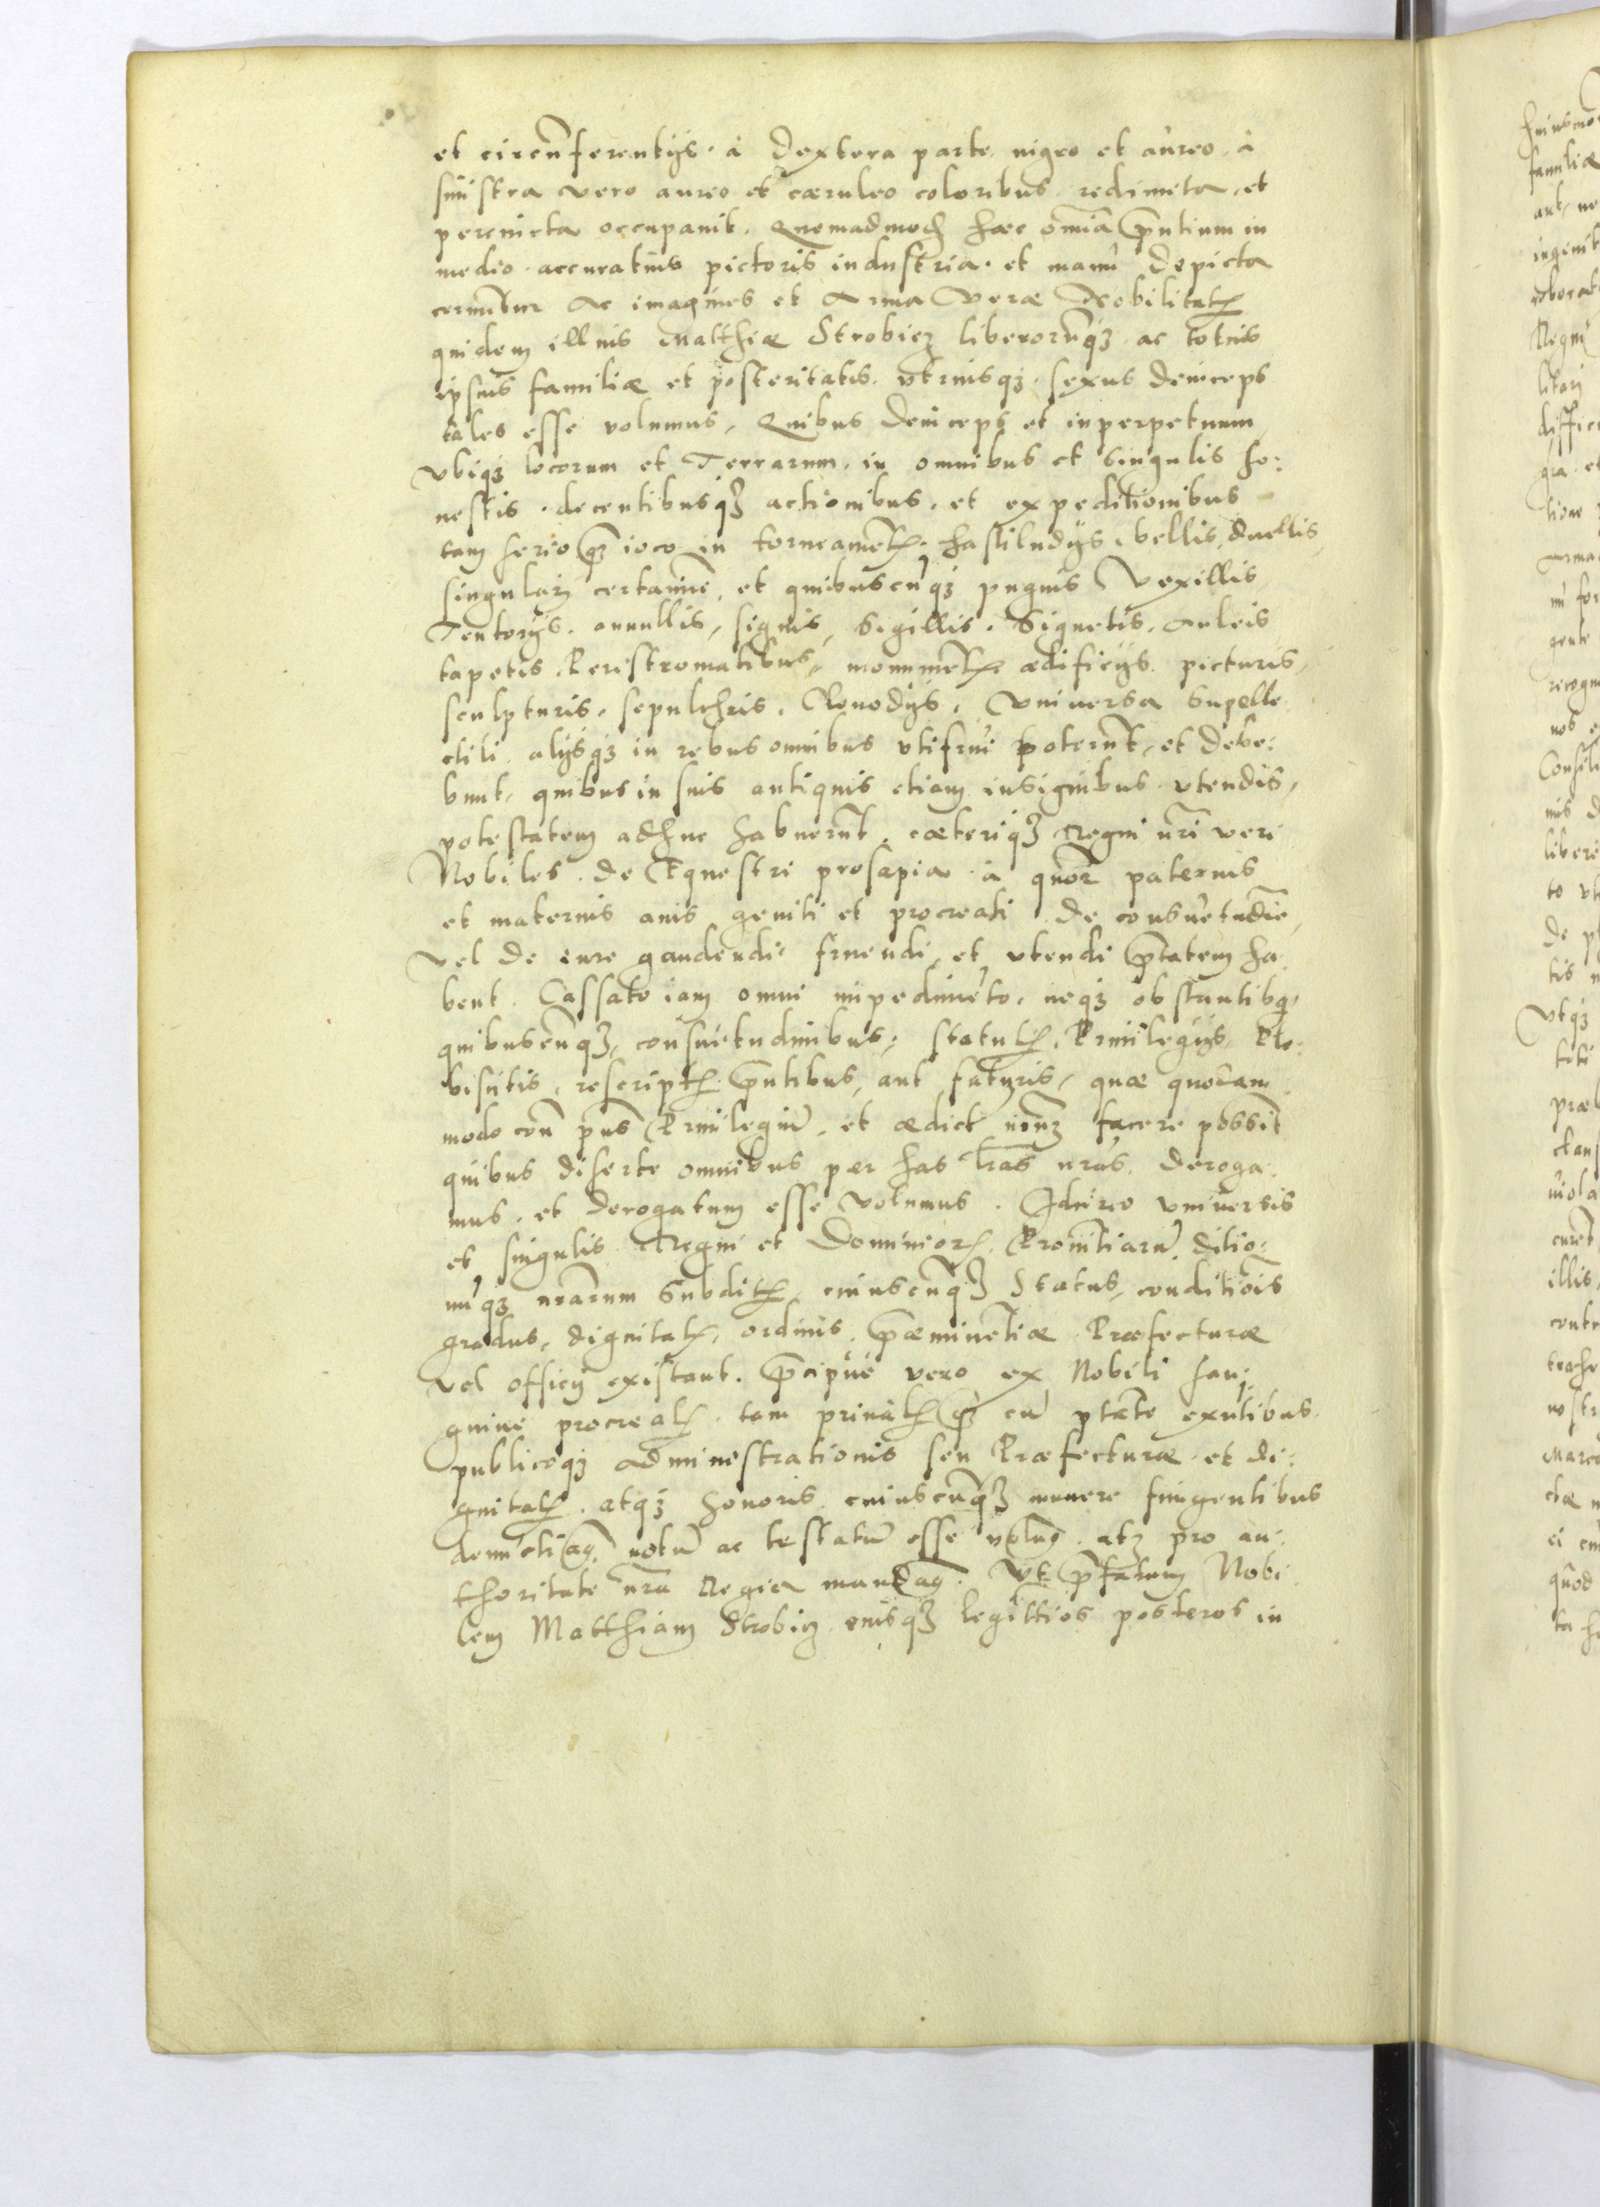 et circūferentijs · à dextera parte nigro et aureo · à
sinistra vero aureo et cæruleo coloribus redimeta, et
percincta occupauit. Quemadmodū hæc omīa p̄ntium in
medio accuratius pictoris industria et manu depicta
cernūtur Ac imagines et Arma Veræ Nobilitatis
quidem illius Matthiæ Strobicz liberorūq3 ac totius
ipsius familiæ et posteritatis utriusq3 sexus deinceps
tales esse volumus, Quibus deinceps et inperpetuum
vbiq3 locorum et Terrarum, in omnibus et singulis ho:
nestis decentibusq3 actionibus, et expeditionibus
tam serio q̄3 ioco in torneamētis, hastiludijs, bellis, duellis,
singulari certamine, et quibuscūq3 pugnis Vexillis
Tentorijs, annullis, signis, Sigillis, Signetis, Auleis
tapetis, Peristromatibus, monumētis ædificijs picturis,
sculpturis, sepulchris, Clenodijs, Vniuersa Supelle
ctili, alijsq3 in rebus omnibus vtifrui poterūt, et debe:
bunt, quibus in suis antiquis etiam insignibus vtendis,
potestatem adhuc habuerūt, cæteriq3 Regni nr̄i veri
Nobiles de Equestri prosapia à quor̄ paternis
et maternis auis geniti et procreati de consuetudīe
vel de iure gaudendi fruendi, et vtendi p̄tatem ha
bent. Cassato iam omni impedimēto, neq3 obstantibq
quibuscūq3, consuetudinibus, statutis, Priuilegijs, Ple:
biscitis, rescriptis p̄ntibus, aut futuris, quæ quouam
modo con̄ p̄ns Priuilegiū, et ædict̄ nr̄m facere possīt
quibus diserte omnibus per has lr̄as nr̄as deroga:
mus, et derogatum esse volumus. Idcirco vniuersis
et singulis Regni et Dominior̄, Prouītiarū, ditio:
nūq3 nr̄arum Subditis, cuiuscūq3 Status, conditiōis
gradus, dignitatis, ordinis, p̄æminētiæ Præfecturæ
vel officij existant. p̄cipue vero ex Nobili san:
guine procreatis, tam priuatis q̄3 cū ptāte exn̄tibus
publiceq3 administrationis seu Præfecturæ et di:
gnitatis, atq3 honoris cuiuscūq3 munere fungentibus
notū ac testatū esse atq3 pro au:
thoritate nr̄a Regia Vt p̄fatum Nobi
lem Matthiam Strobicz eiusq3 legittīos posteros in